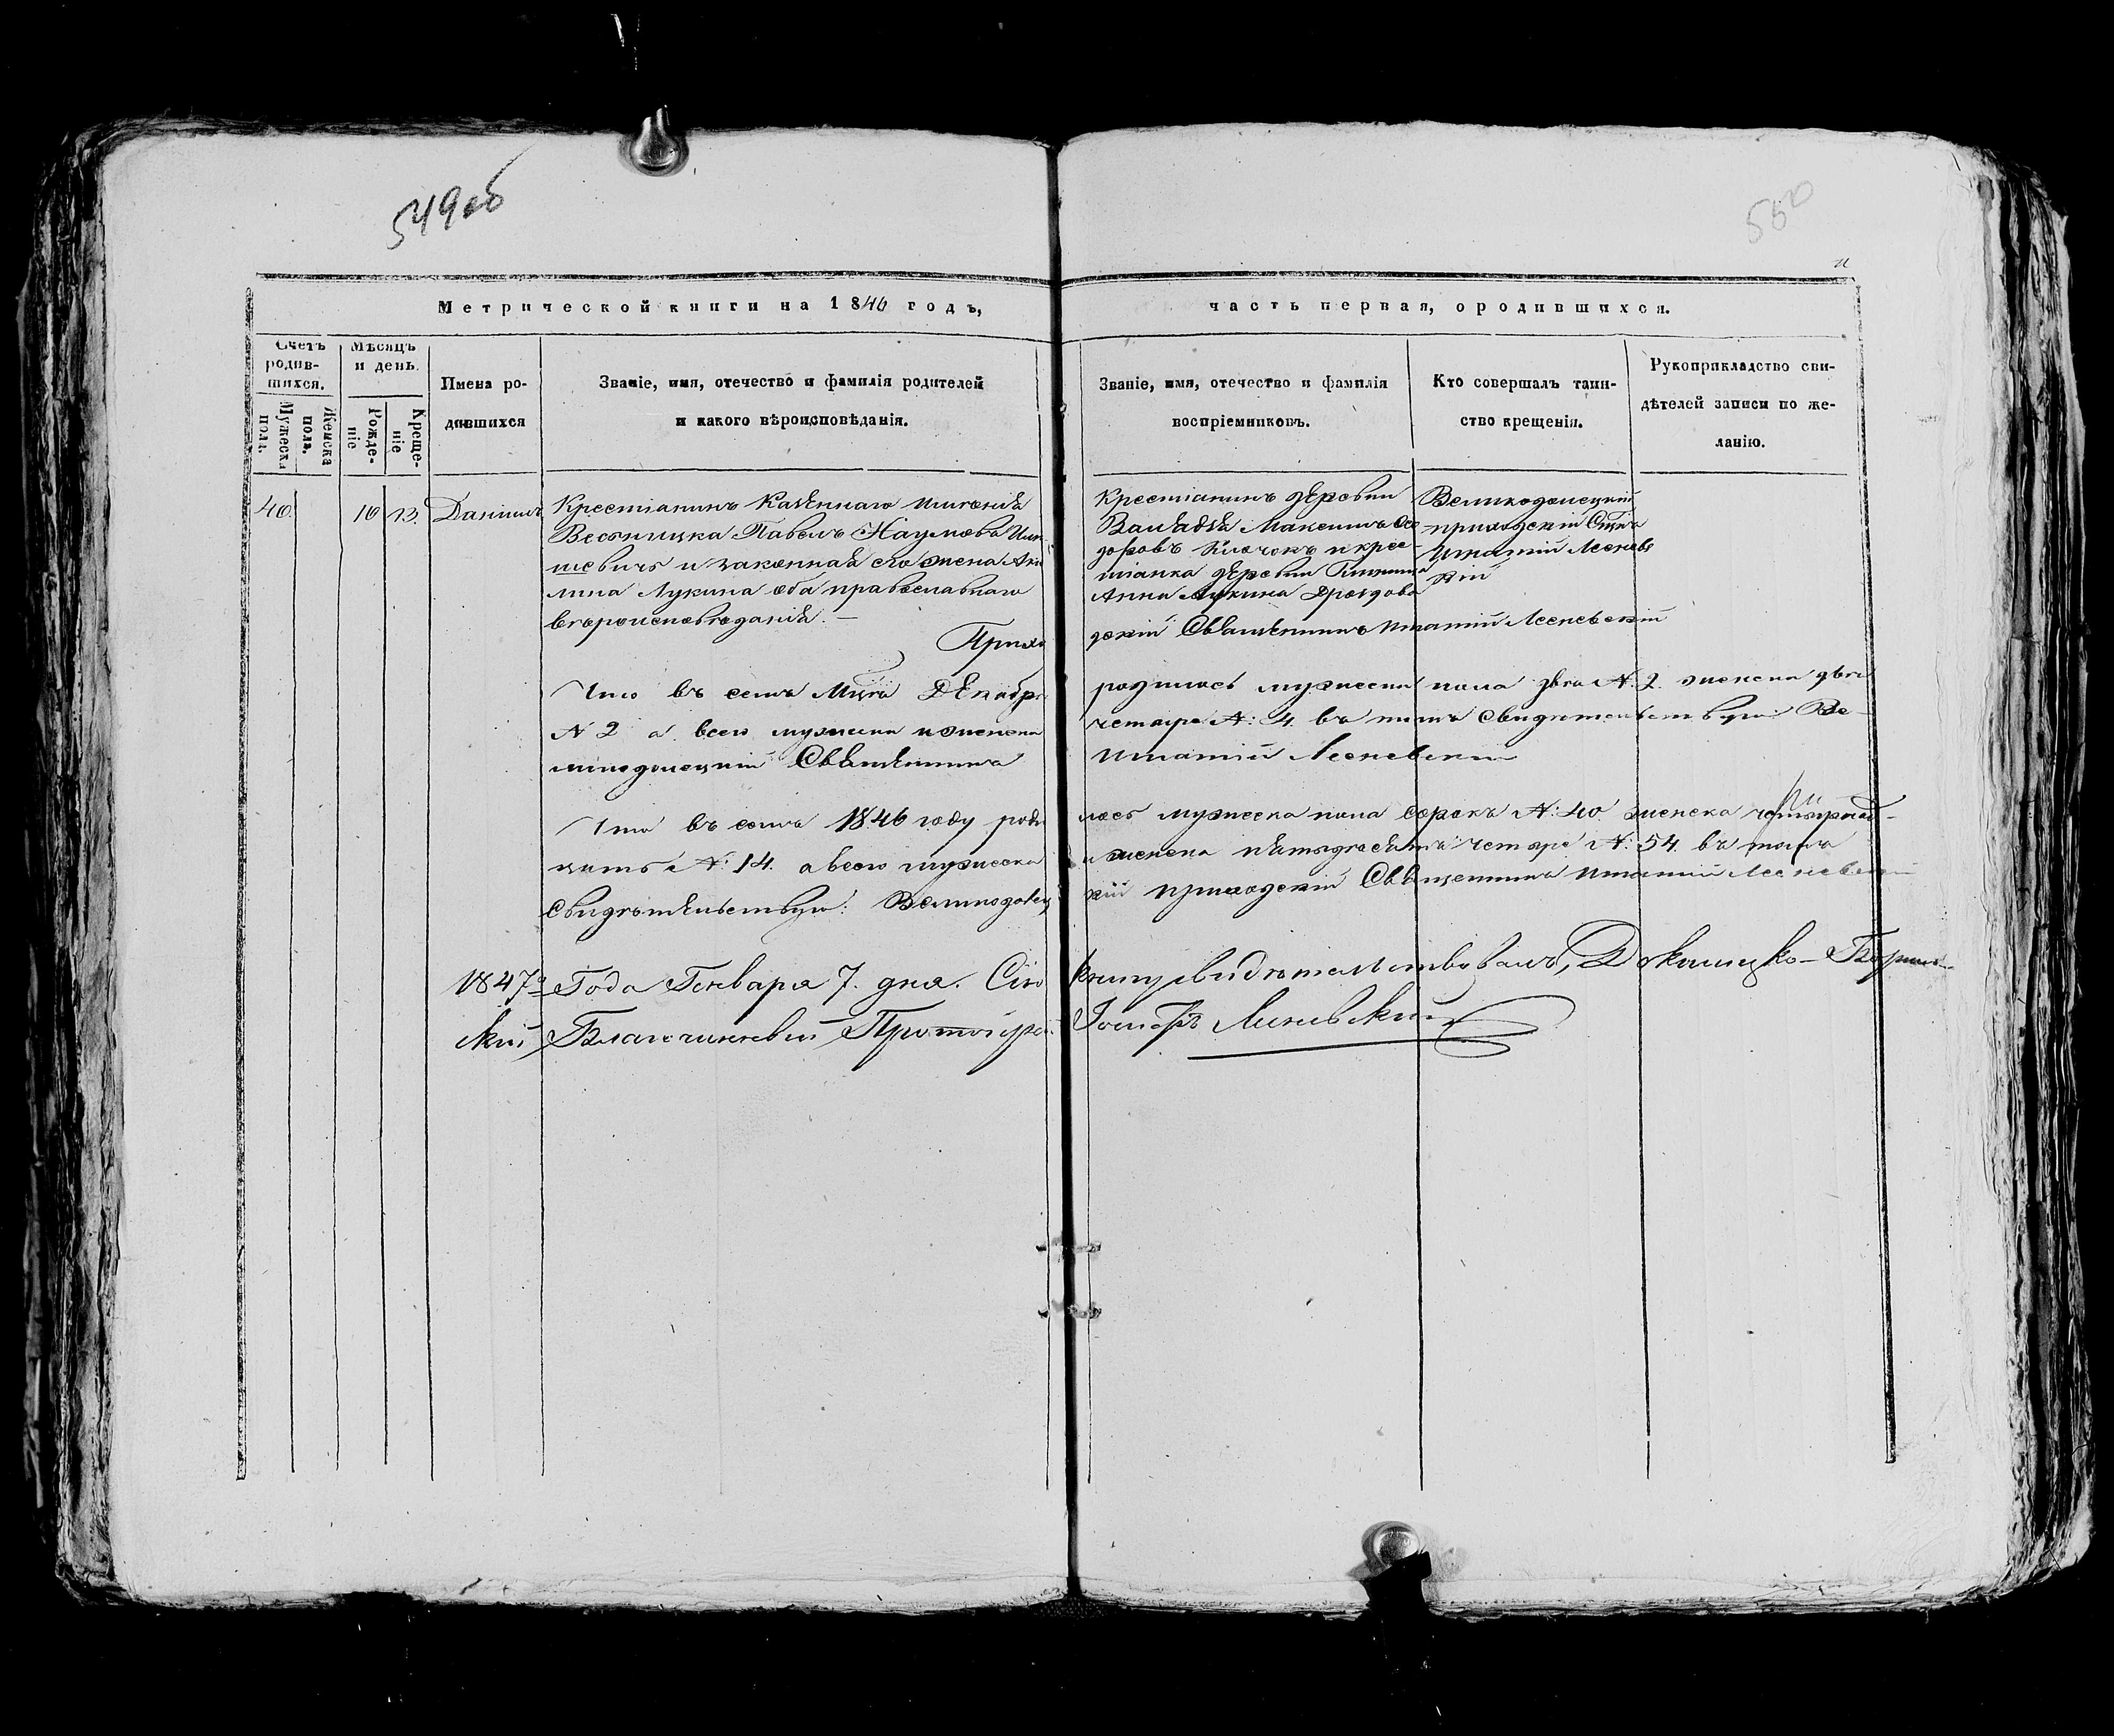 549об
550
Метрической книги на 1846 годъ, часть первая, ородившихся.
Счетъ родив-шихся.
Мужеска пола.
Женска пола.
Мѣсяцъ и день.
Рожде-ніе
Креще-ніе
Имена ро-дившихся
Званіе, имя, отечество и фамилія родителей
и какого вѣроисповѣданія.
Званіе, имя, отечество и фамилія
воспріемниковъ.
Кто совершалъ таин-
ство крещенія.
Рукоприкладство сви-
дѣтелей записи по же-
ланію.
40. 10 13. Даніилъ
Крестіанинъ Казеннаго имѣнія
Весницка Павелъ Наумовъ
шевичъ и законная его жена Аки
лина Лукина оба православнаго
вѣроисповѣданія. —
Крестіанинъ деревни
Максимъ Фео
доровъ Клочокъ и крес-
тіанка деревни
Анна Лукина Дроздова
Великодолецкій
приходскій Сщнъ
Игнатій
кій
Прихо
дскій Священникъ Игнатій
Что въ семъ Мцѣ Декабрѣ родилось мужеска пола два №. 2. женска двѣ
№ 2 а всего мужеска и женска четыре №: 4. въ томъ свидетельствую: Ве-
ликодолецкій Священникъ Игнатій
Что въ семъ 1846 году роди лось мужеска пола сорокъ №: 40. женска четырнад-
цать №: 14. а всего мужеска и женска пятдесятъ четыре №: 54. въ томъ
Свидѣтельствую: Великодолец кій приходскій Священникъ Игнатій
1847го Года Генваря 7. дня. Сію Книгу свидѣтельствовалъ, Докшицко-Борисов-
скій Благочинный Протоіерей Іосифъ